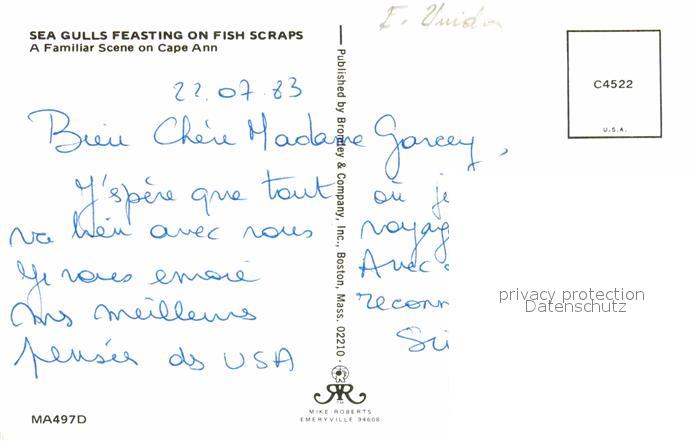 SEA GULLS FEASTING ON FISH SCRAPS
A Familiar Scene on Cape Ann
E. Unidos
C4522
U.S.A.
22.07.83
Bien Chère Madame Garcey,
J'spère que tout
va bien avec vous
Je vous envoie
mes meilleures
pensée ds USA
où je
voyag
Avec
reconn
Published by Bromley & Company, Inc., Boston, Mass. 02210
privacy protection
Datenschutz
MIKE ROBERTS
EMERYVILLE 94608
MA497D